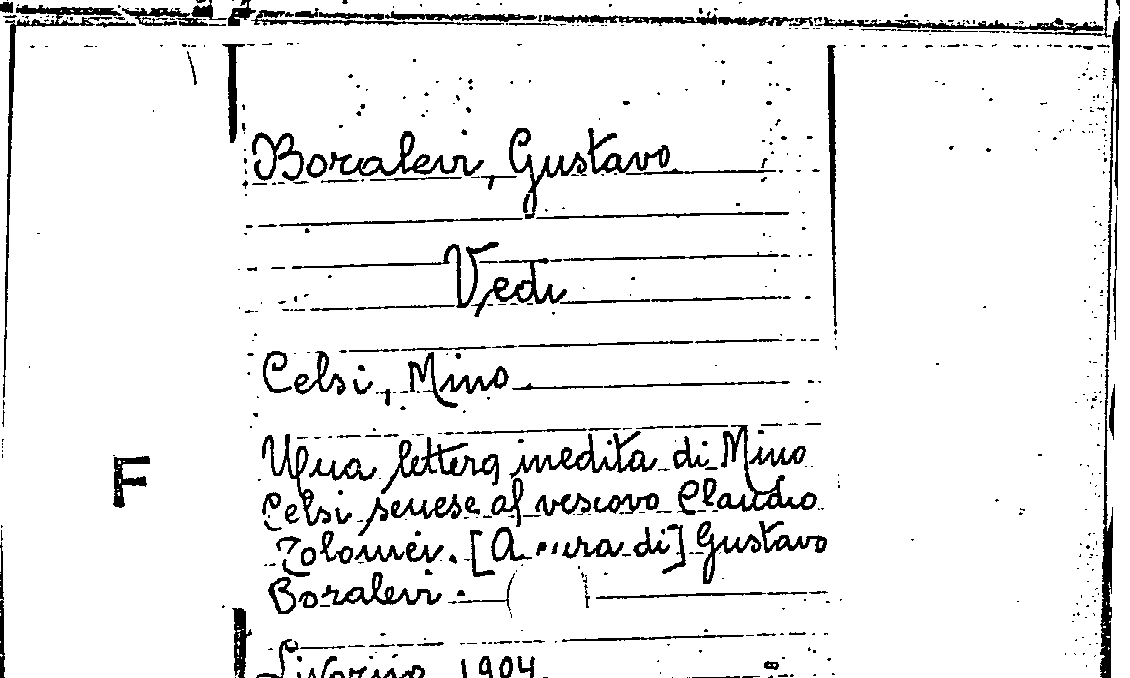 Boralevi, Gustavo
Vedi
Celsi, Mino
Una lettera inedita di Mino
Celsi senese al vescovo Claudio
Tolomei. [A cura di] Gustavo
Boralevi.
F
Livorno 1904.